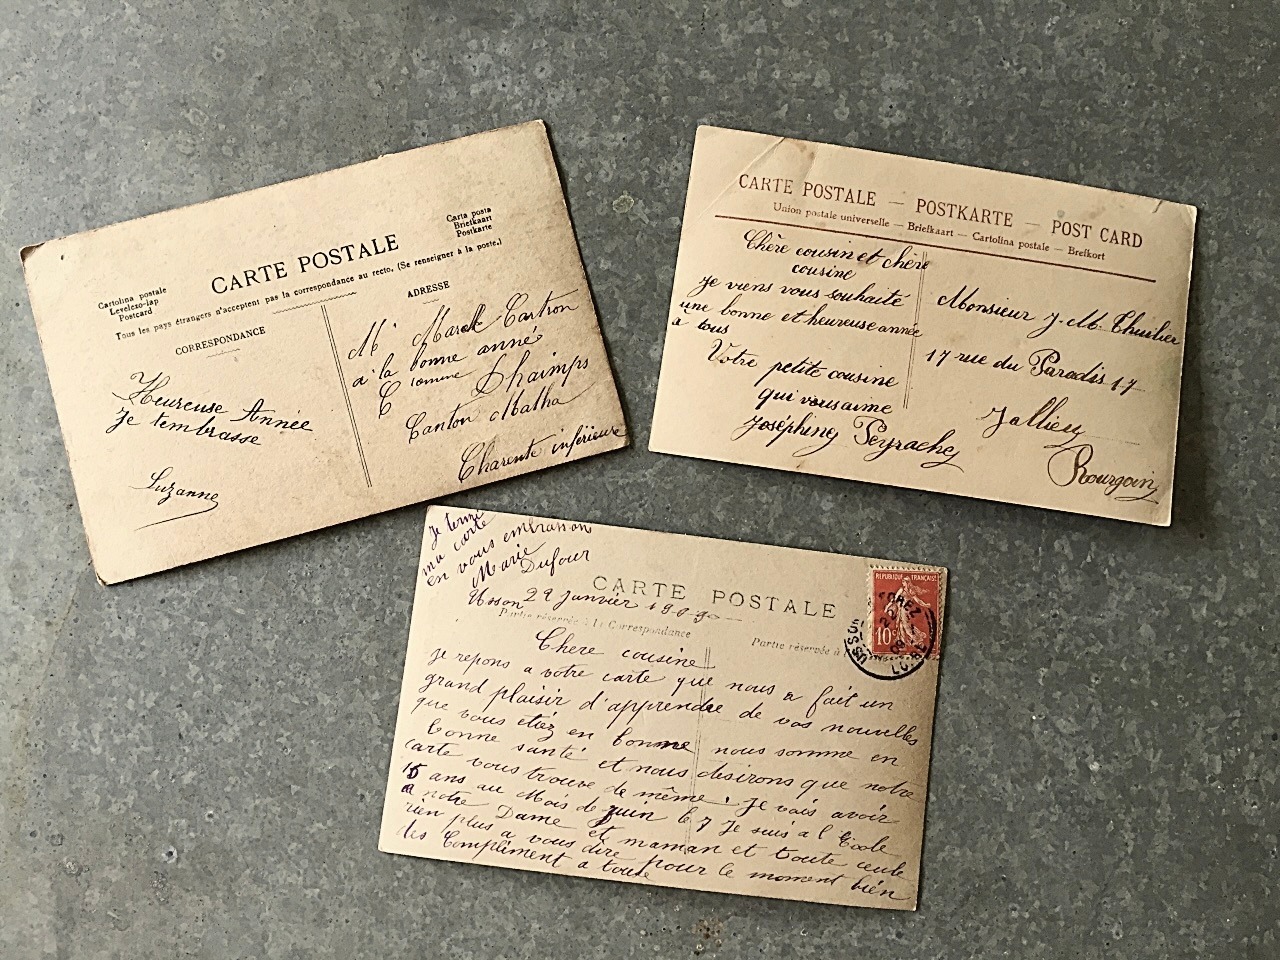 Carta posta
Briefkaart
Postkarte
CARTE POSTALE
Cartolina postale
Levelezo-lap
Postcard
Tous les pays étrangers n'acceptent pas la correspondance au recto. (Se renseigner à la poste.)
CORRESPONDANCE
ADRESSE
Heureuse Année
Je tembrasse
Suzanne
Mr Castron
a la bonne anné
Comune Dhaimps
Canton Matha
Charente inférieure
CARTE POSTALE — POSTKARTE — POST CARD
Union postale universelle — Briefkaart — Cartolina postale — Brefkort
Chère cousin et chère
cousine
Je viens vous souhaité
une bonne et heureuse année
a tous
Votre petite cousine
qui vous aime
Joséphine Peyrache
Monsieur J. M. Thuilier
17 rue du Paradis 17
Jallieu
Bourgoin
Je termine
ma carte
en vous embrassan
Marie
Dufour
CARTE POSTALE
Usson 29 Janvier 1909
Partie réservée à la Correspondance
Partie réservée à
REPUBLIQUE FRANÇAISE
10c
USSON FOREZ
09
LOIRE
Chere cousine
Je repons a votre carte que nous a fait un
grand plaisir d'apprendre de vos nouvelles
que vous etiez en bonne nous somme en
bonne santé et nous desirons que notre
carte vous trouve de même. Je vais avoir
15 ans au Mois de Juin le 7 Je suis a l Ecole
a notre Dame et maman et toute ceule
rien plus a vous dire pour le moment bien
des Compliment a toute